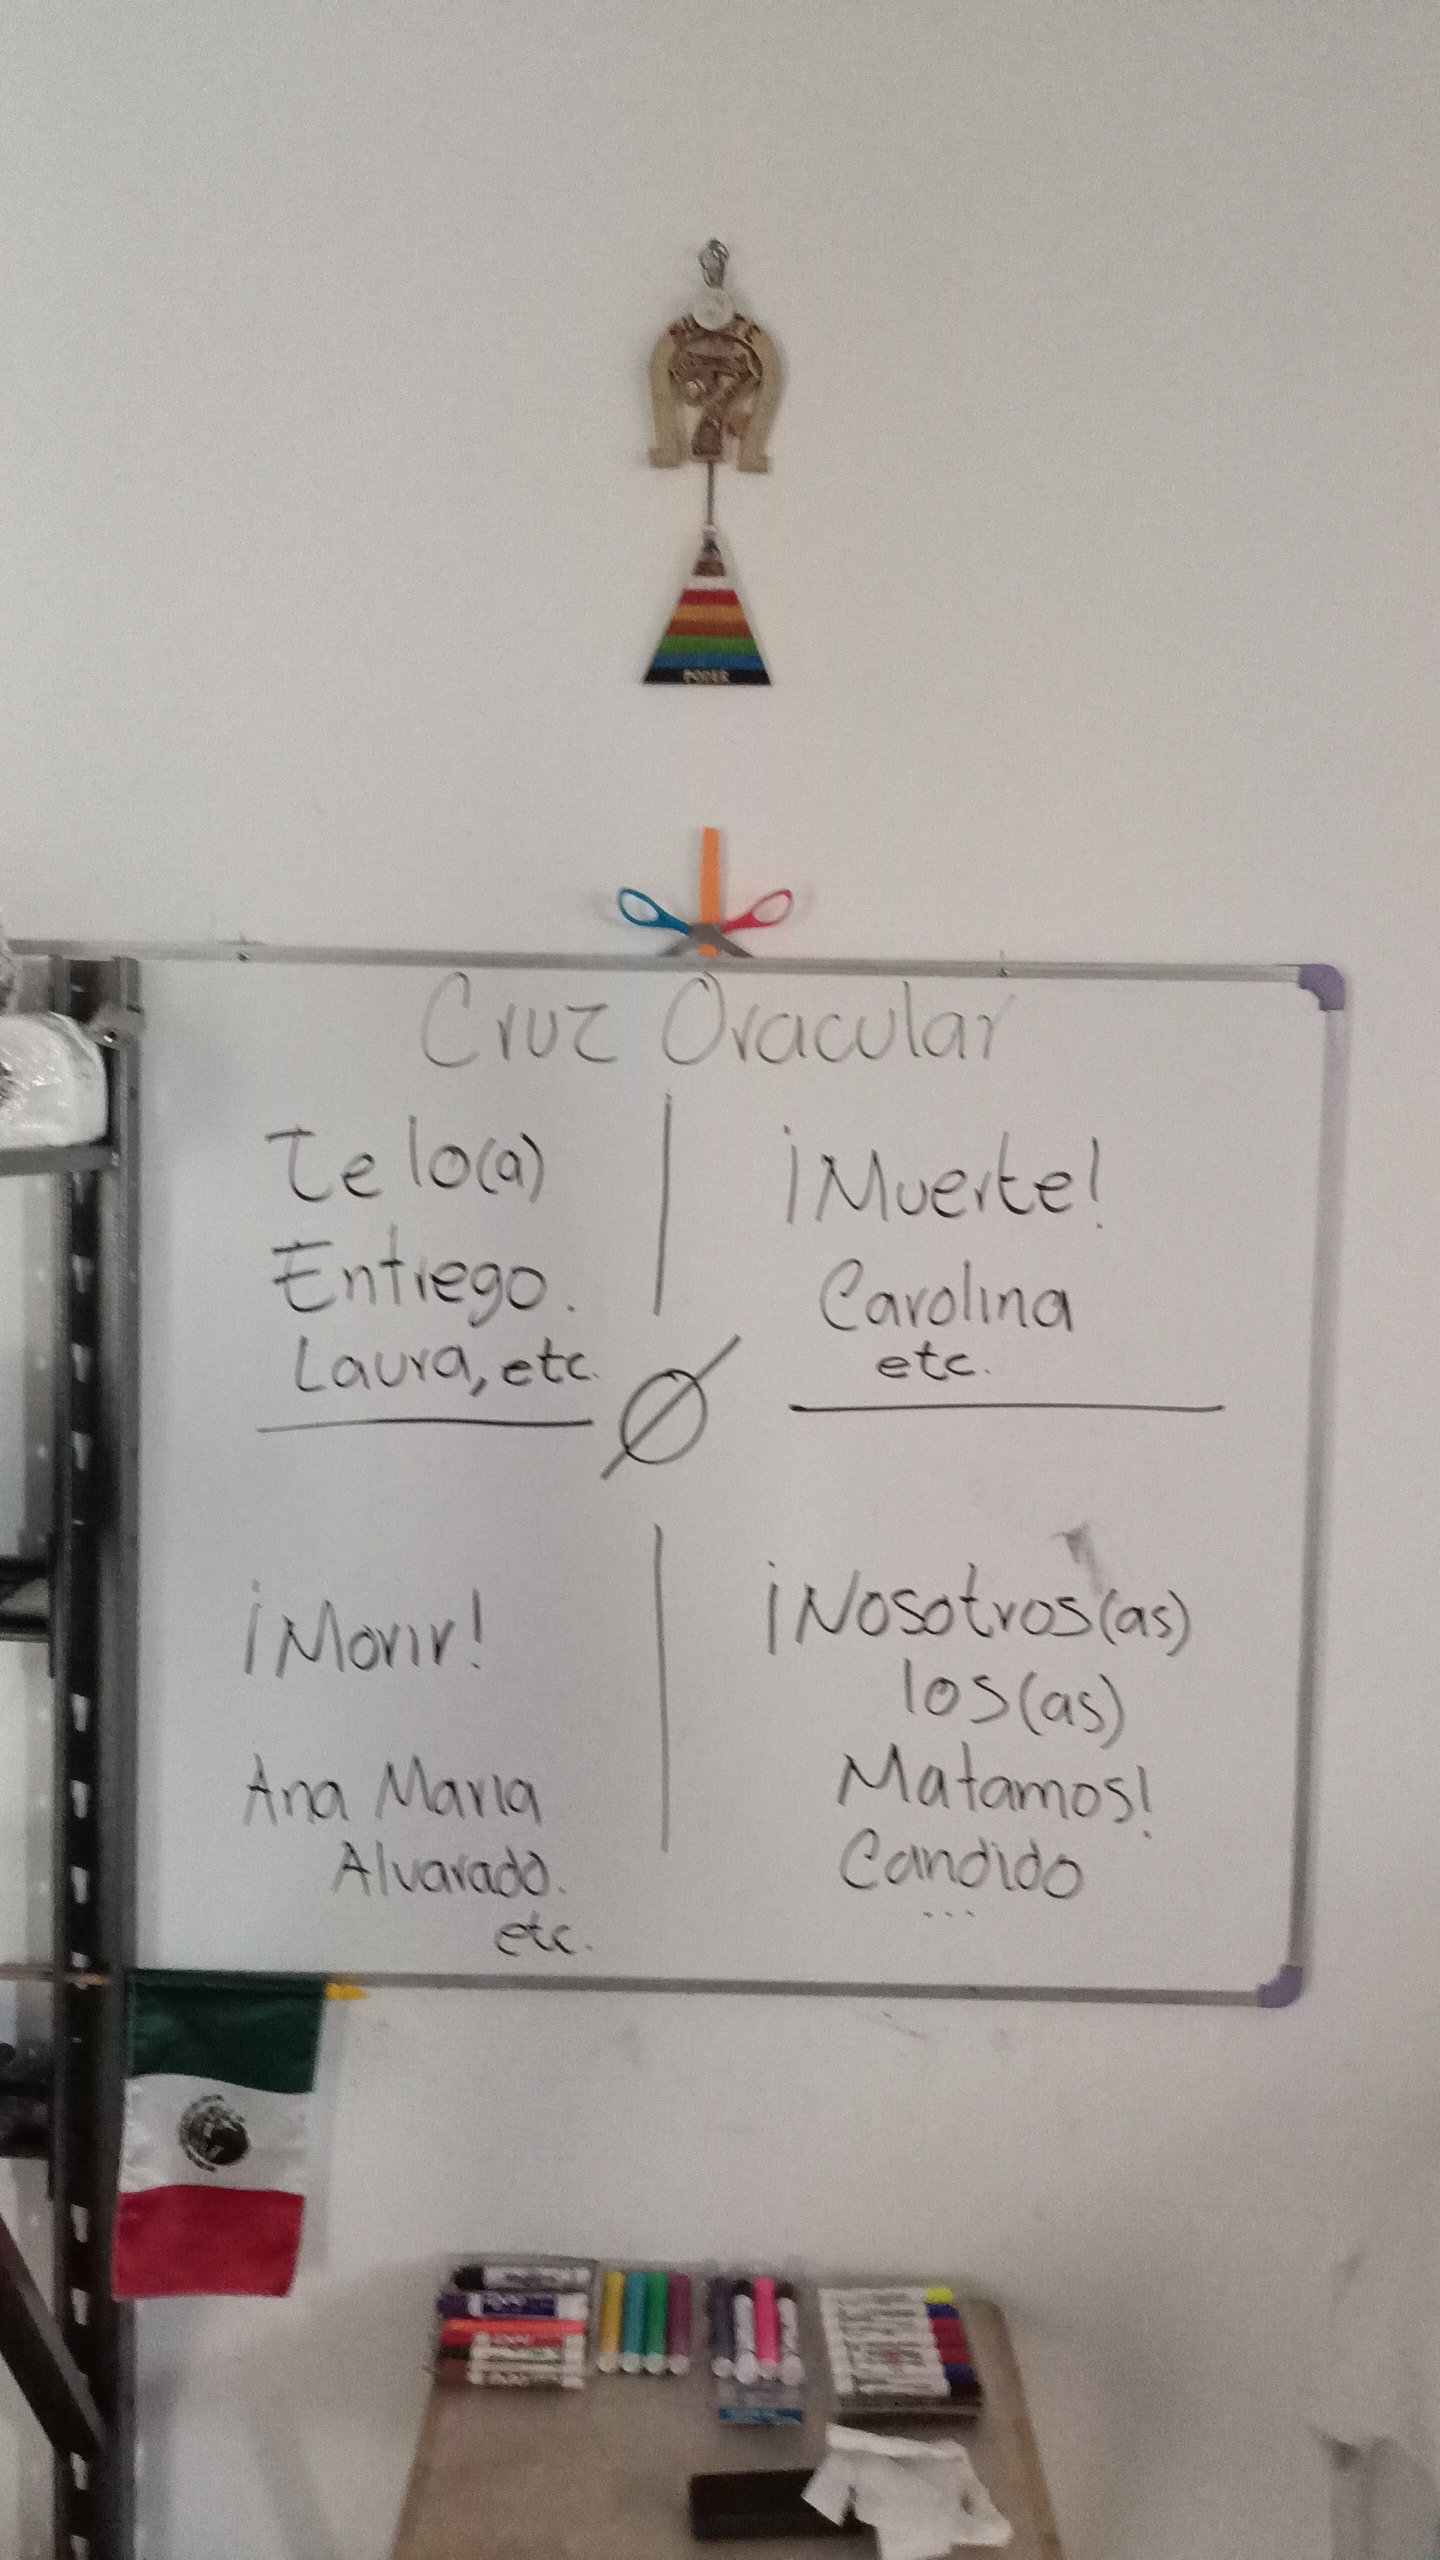 PODER
Cruz Oracular
Te lo(a)
Entrego.
Laura, etc.
¡Muerte!
Carolina
etc.
Ø
¡Morir!
Ana Maria
Alvarado.
etc.
¡Nosotros(as)
los(as)
Matamos!
Candido
...